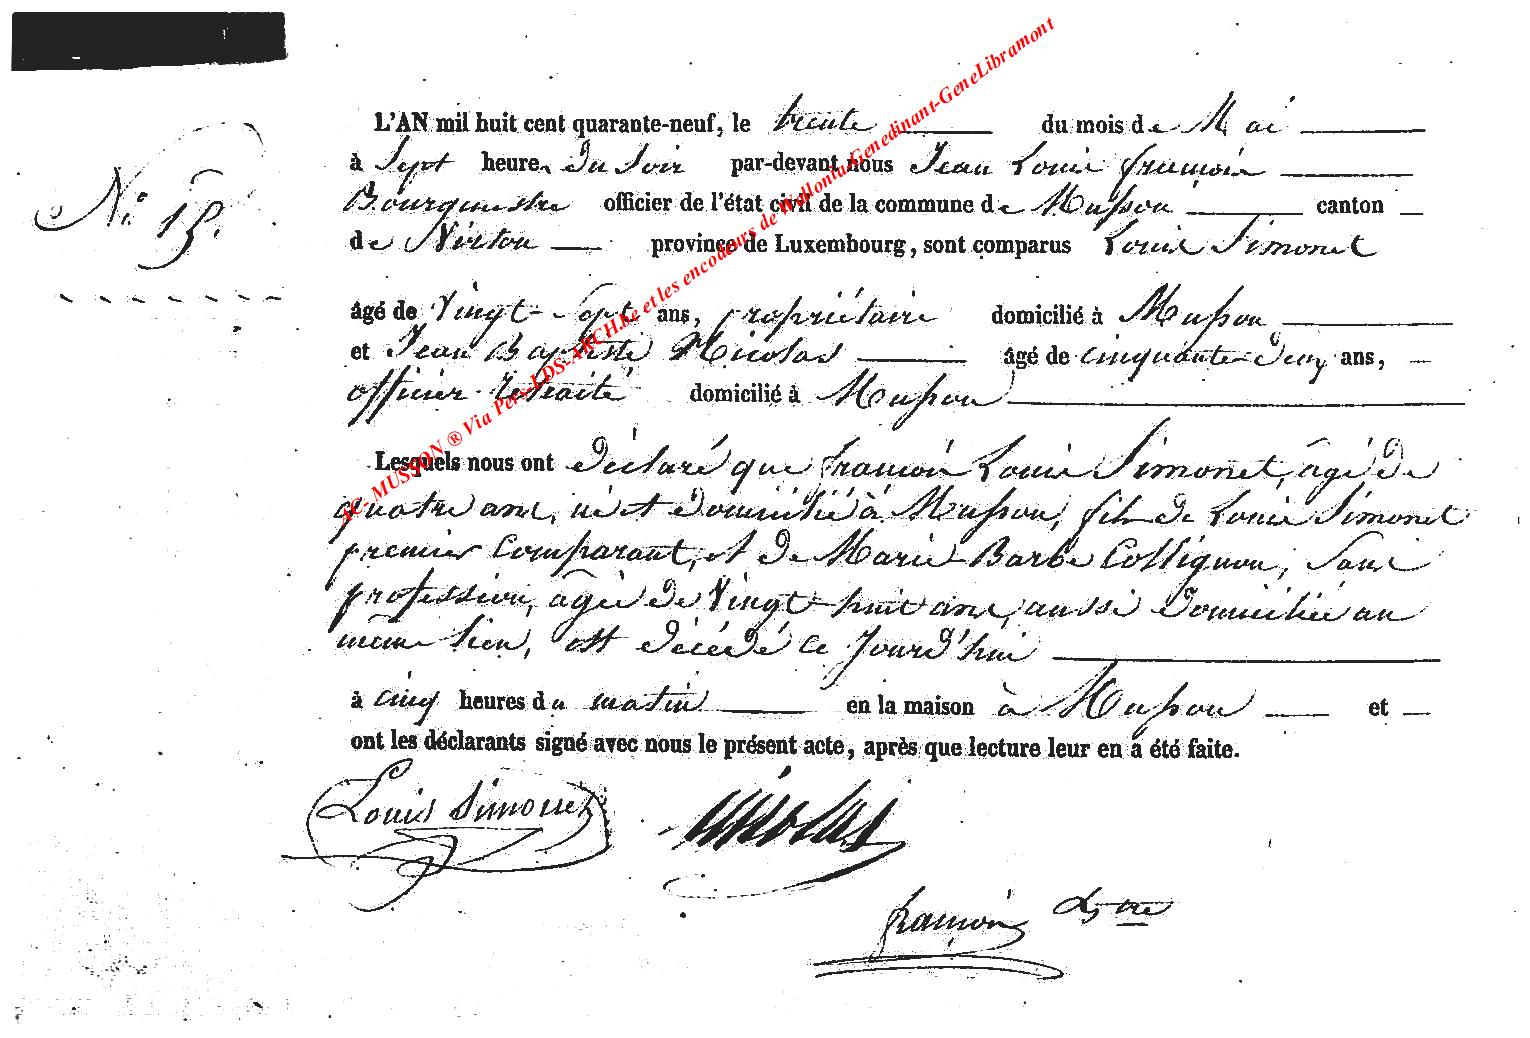 L'AN mil huit cent quarante-neuf, le trente du mois de Mai
à Sept heures du Soir par-devant nous Jean Louis françois
N.° 15.
Bourgmestre officier de l'état civil de la commune de Musson canton
de Virton province de Luxembourg, sont comparus Louis Simonet
âgé de Vingt-Sept ans, propriétaire domicilié à Musson
et Jean Baptiste Nicolas âgé de cinquante-deux ans,
officier retraité domicilié à Musson
Lesquels nous ont déclaré que françois Louis Simonet, âgé de
quatre ans, né et domicilié à Musson, fils de Louis Simonet
premier Comparant, et de Marie Barbe Collignon, sans
profession, âgée de Vingt-huit ans, aussi domiciliée au
même lieu, est décédé ce Jourd'hui
à cinq heures du matin en la maison à Musson et
ont les déclarants signé avec nous le présent acte, après que lecture leur en a été faite.
Louis Simonet Nicolas
françois
JC. MUSSON ® Via Pers-LDS-ARCH.be et les encodeurs de Wallonia-Genedinant-GeneLibramont